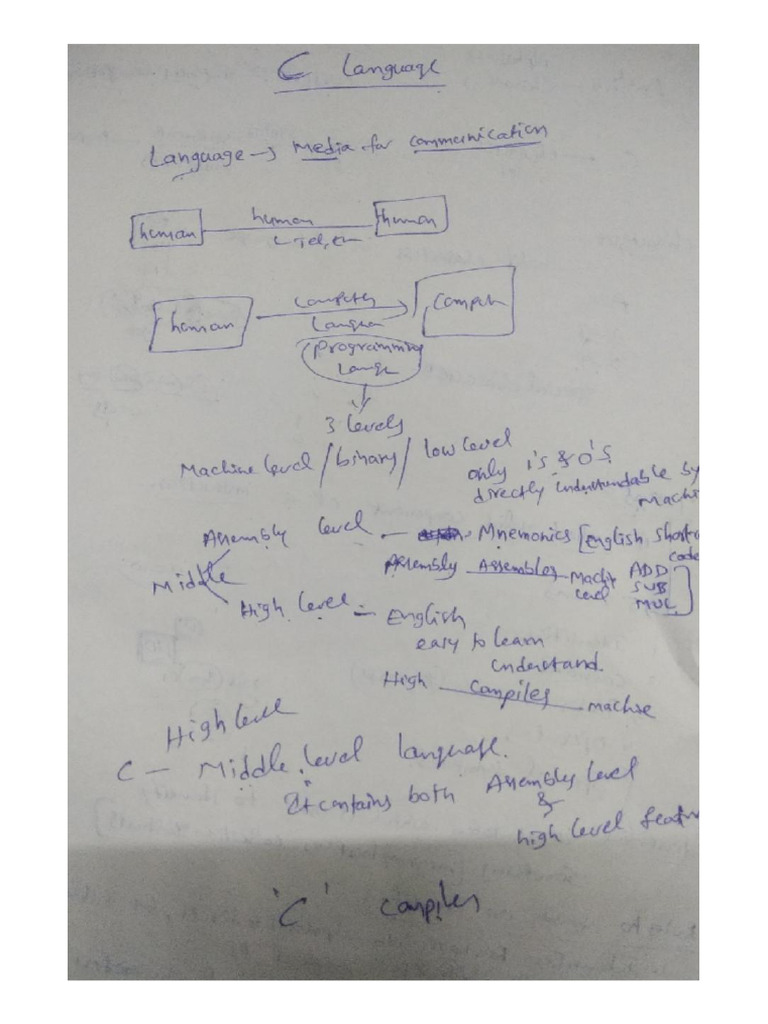 C Language
Language → Media for communication
human human human
Tel, En
human Computer Comput
Langua
programming
Langu
3 levels
Machine level / binary / low level
only 1's & 0's
directly understandable by
Machi
Assembly level - Mnemonics [English short
code
Assembly Assembler Machi level ADD
SUB
MUL ]
Middle
High level - English
easy to learn
understand.
High Compiler machie
High level
C - Middle level language.
It contains both Assembly level
&
high level featur
'C' compiler